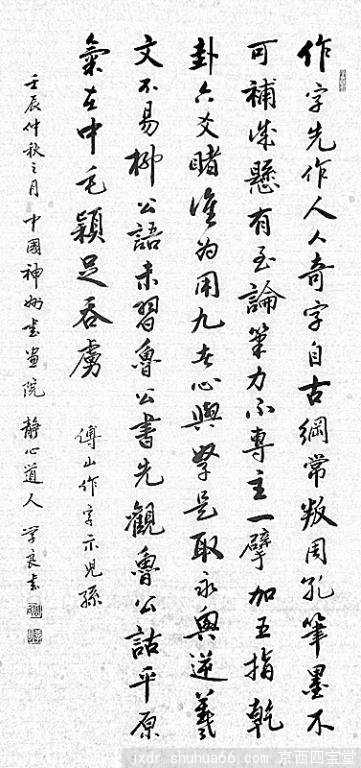 作字先作人人奇字自古綱常叛周孔筆墨不
可補诚懸有至論筆力不專主一擘加五指乾
卦六爻睹誰为用九者心與掔是取永興逆羲
文不易柳公語未習魯公書先觀魯公詁平原
氣在中毛穎足吞虜
傅山作字示兒孫
壬辰仲秋之月中國神州书画院靜心道人学良书
jxdr.shuhua66.com 京西四宝堂